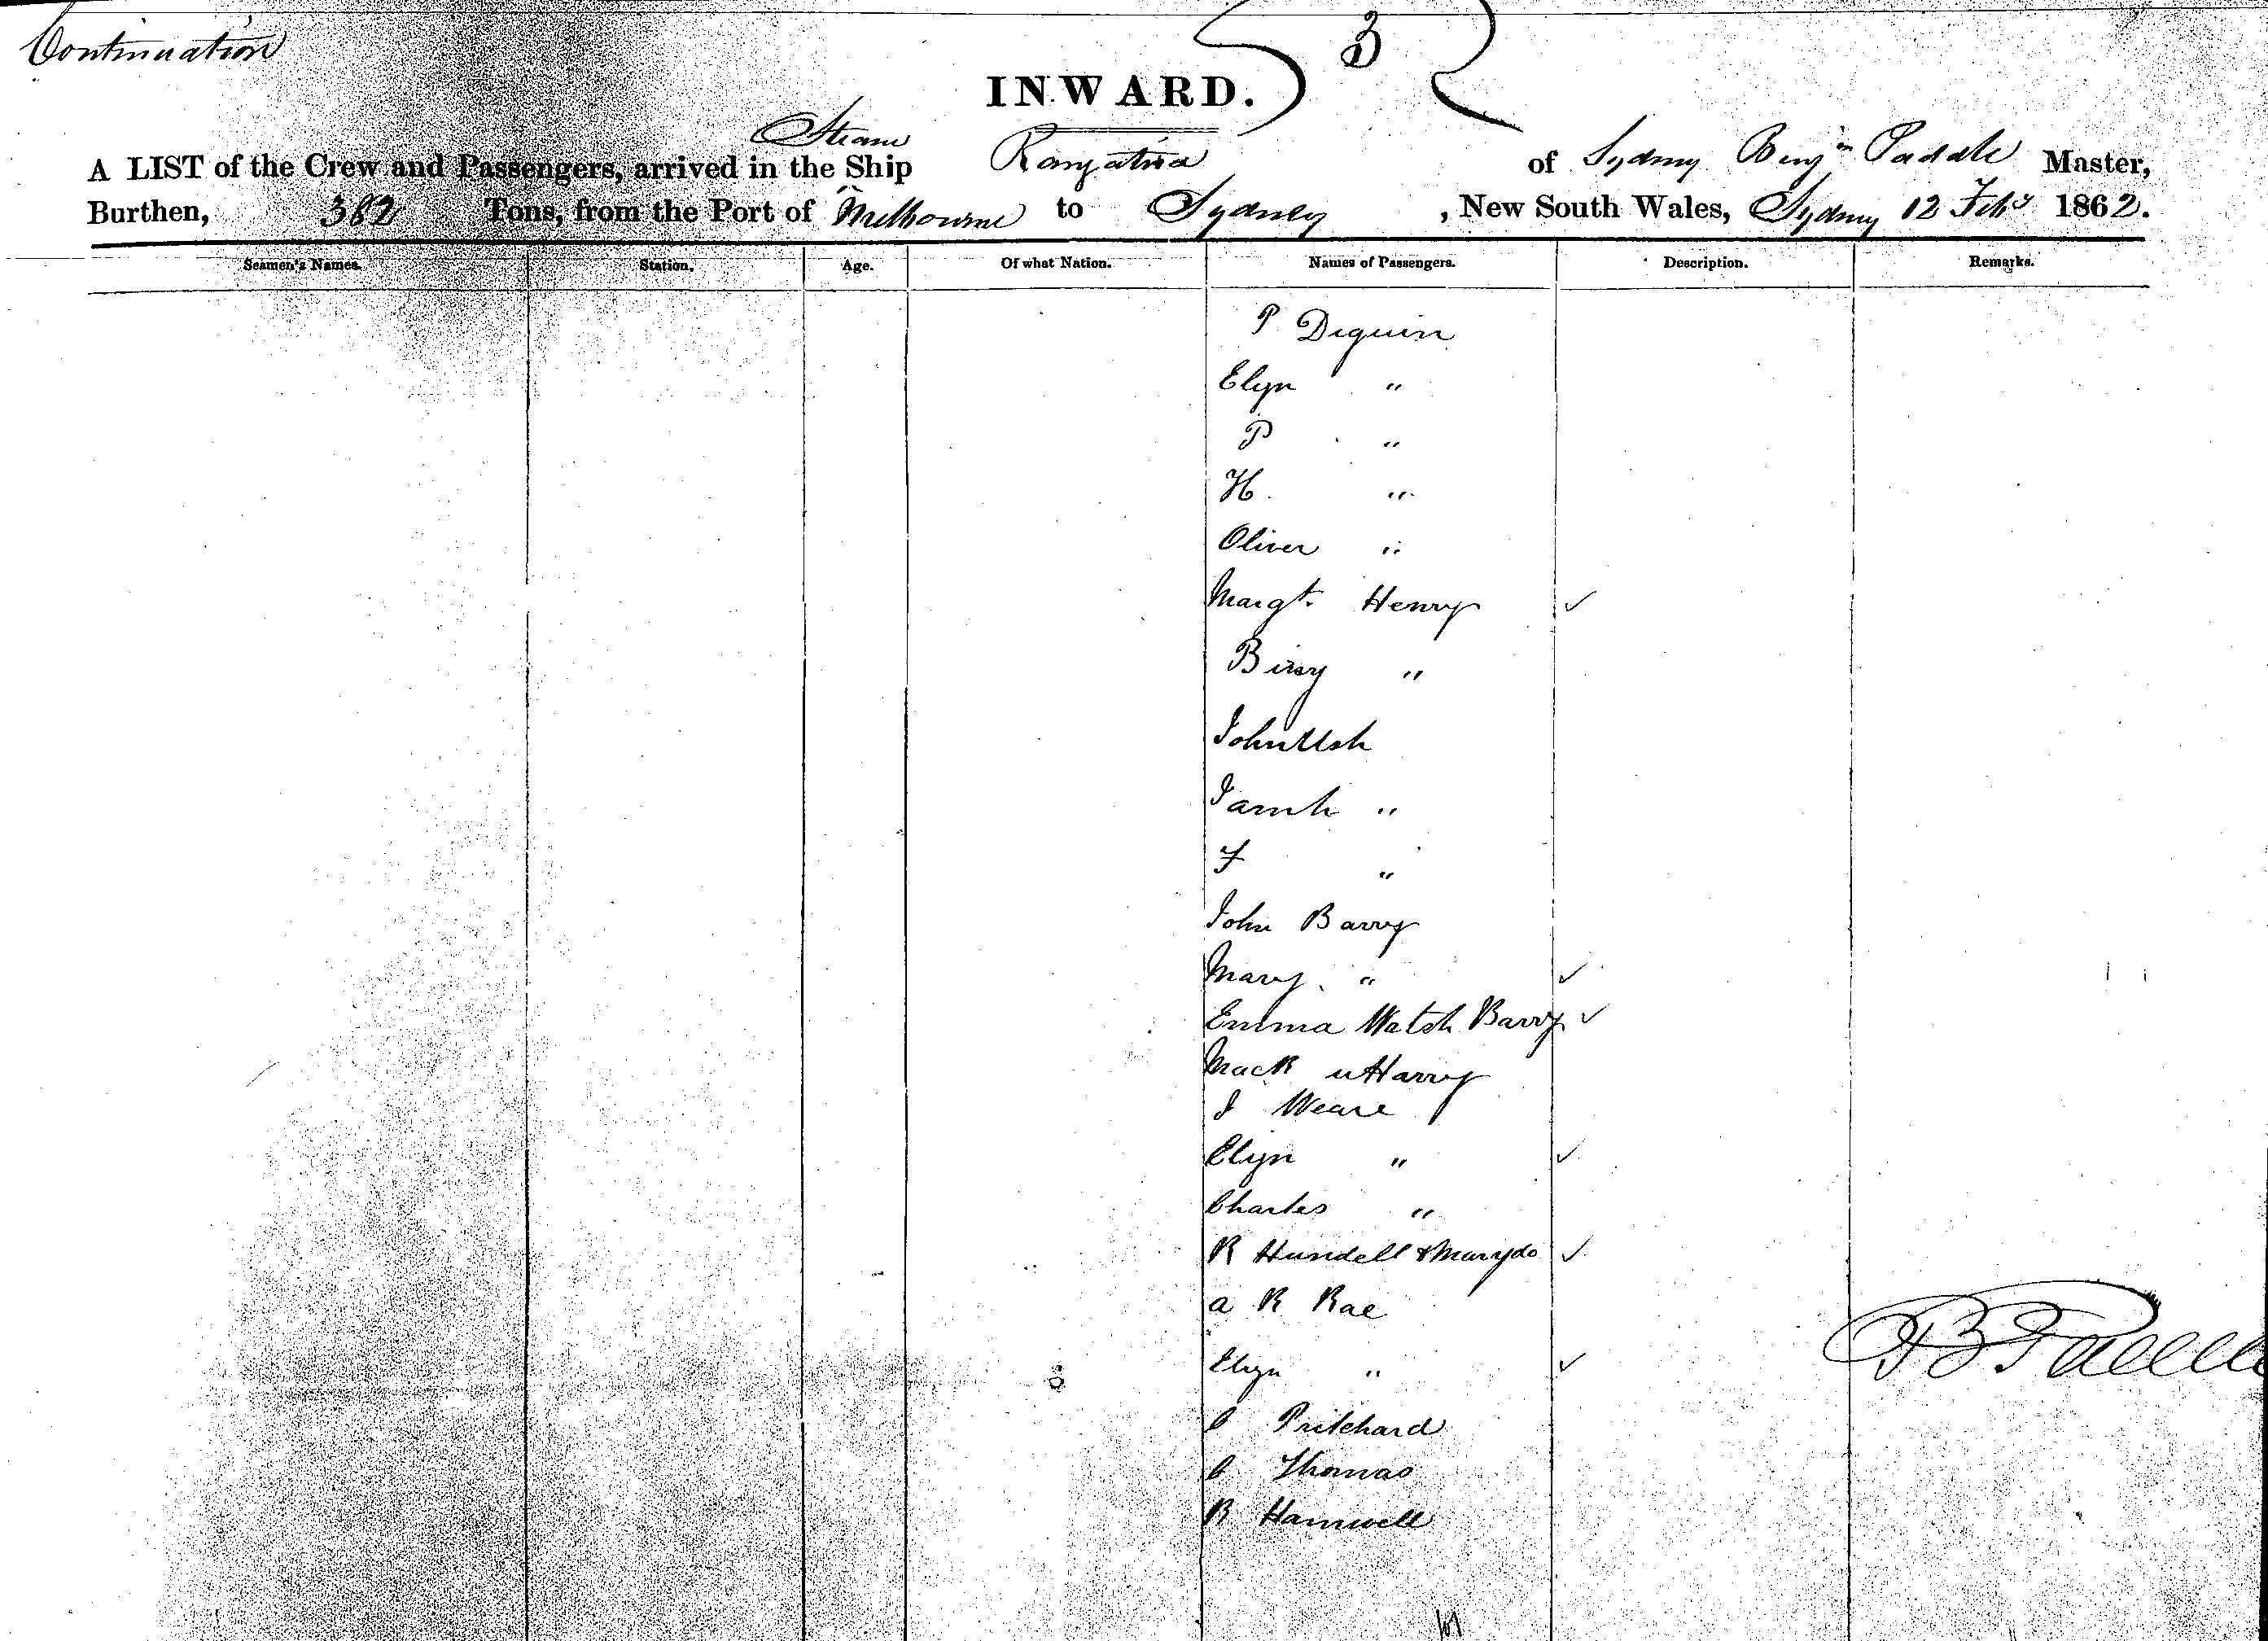 Continuation
3
INWARD.
Steam
A LIST of the Crew and Passengers, arrived in the Ship Rangatira of Sydney Benjn Paddle Master,
Burthen, 382 Tons, from the Port of Melbourne to Sydney, New South Wales, Sydney 12 Feby 1862.
Seamen's Names. Station. Age. Of what Nation. Names of Passengers. Description. Remarks.
P Dequin
Elyn "
P "
H. "
Oliver "
Margt. Henry ✓
"
John Ush
"
F "
John Barry
Mary " ✓
Emma Watsh Barry ✓
Mack Harry
J Weare
Elyn " ✓
Charles "
R Hundell & Mary do ✓
a R Rae
Elyn " ✓
C Pritchard
C Thomas
R Hamwell
B